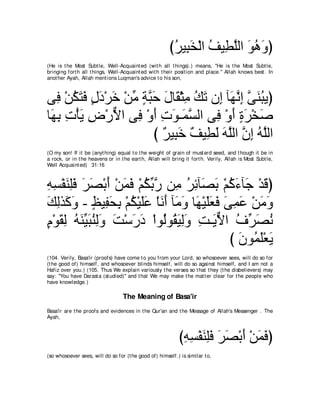 (وَهُوَ اللَّطِيفُ الْخَبِيرُ)
(He is the Most Subtle, Well-Acquainted (with all things).) means, "He is the Most Subtle,
bringing forth all things, Well-Acquainted with their position and place.'' Allah knows best. In
another Ayah, Allah mentions Luqman's advice to his son,
(يبُنَىَّ إِنَّهَآ إِن تَكُ مِثْقَالَ حَبَّةٍ مِّنْ خَرْدَلٍ فَتَكُنْ فِى
صَخْرَةٍ أَوْ فِى السَّمَـوَتِ أَوْ فِى الاٌّرْضِ يَأْتِ بِهَا
اللَّهُ إِنَّ اللَّهَ لَطِيفٌ خَبِيرٌ )
(O my son! If it be (anything) equal to the weight of grain of mustard seed, and though it be in
a rock, or in the heavens or in the earth, Allah will bring it forth. Verily, Allah is Most Subtle,
Well Acquainted) 31:16
(قَدْ جَآءَكُمْ بَصَآئِرُ مِن رَّبِّكُمْ فَمَنْ أَبْصَرَ فَلِنَفْسِهِ
وَمَنْ عَمِىَ فَعَلَيْهَا وَمَآ أَنَاْ عَلَيْكُمْ بِحَفِيظٍ - وَكَذلِكَ
نُصَرِّفُ الاٌّيَـتِ وَلِيَقُولُواْ دَرَسْتَ وَلِنُبَيِّنَهُ لِقَوْمٍ
يَعْلَمُونَ )
(104. Verily, Basa'ir (proofs) have come to you from your Lord, so whosoever sees, will do so for
(the good of) himself, and whosoever blinds himself, will do so against himself, and I am not a
Hafiz over you.) (105. Thus We explain variously the verses so that they (the disbelievers) may
say: "You have Darasta (studied)'' and that We may make the matter clear for the people who
have knowledge.)
The Meaning of Basa'ir
Basa'ir are the proofs and evidences in the Qur'an and the Message of Allah's Messenger . The
Ayah,
(فَمَنْ أَبْصَرَ فَلِنَفْسِهِ)
(so whosoever sees, will do so for (the good of) himself.) is similar to,